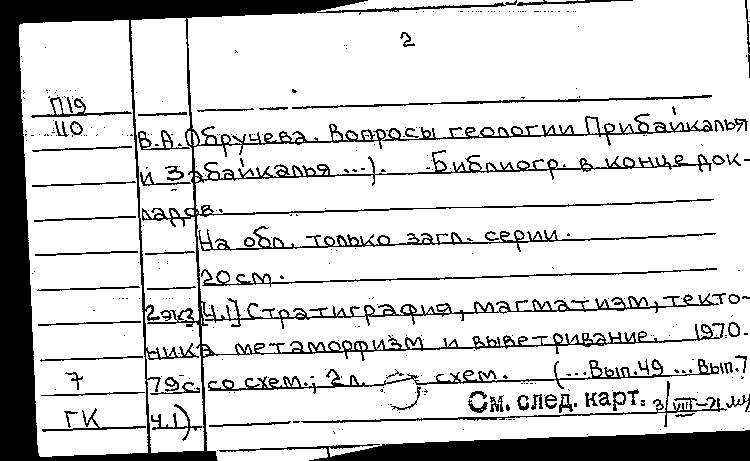 2
П19
110
В.А.Обручева. Вопросы геологии Прибайкалья
и Забайкалья ...). Библиогр. в конце док-
ладов.
На обл. только загл. серии.
20см.
2экз.[Ч.1] Стратиграфия, магматизм, текто-
ника метаморфизм и выветривание. 1970.
7 79с. со схем.; 2л. схем. (...Вып.49 ...Вып.7
ГК Ч.1).
См. след. карт. 3/VIII-71.